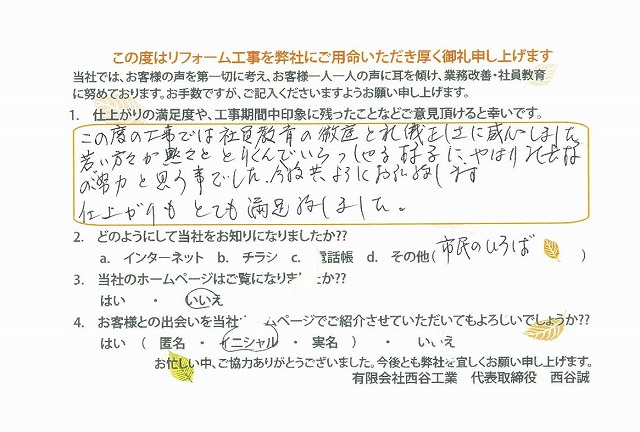 この度はリフォーム工事を弊社にご用命いただき厚く御礼申し上げます
当社では、お客様の声を第一切に考え、お客様一人一人の声に耳を傾け、業務改善・社員教育
に努めております。お手数ですが、ご記入くださいますようお願い申し上げます。
1. 仕上がりの満足度や、工事期間中印象に残ったことなどご意見頂けると幸いです。
この度の工事では社員教育の徹底と礼儀正しさに感心しました。
若い方々が黙々ととりくんでいらっしゃる様子に、やはり
の努力と思う事でした。今後共よろしくお願い致します
仕上がりもとても満足致しました。
2. どのようにして当社をお知りになりましたか??
a. インターネット b. チラシ c. 電話帳 d. その他(市民のひろば)
3. 当社のホームページはご覧になりましたか??
はい ・ いいえ
4. お客様との出会いを当社ホームページでご紹介させていただいてもよろしいでしょうか??
はい ( 匿名 ・ イニシャル ・ 実名 ) ・ いいえ
お忙しい中、ご協力ありがとうございました。今後とも弊社を宜しくお願い申し上げます。
有限会社西谷工業 代表取締役 西谷誠